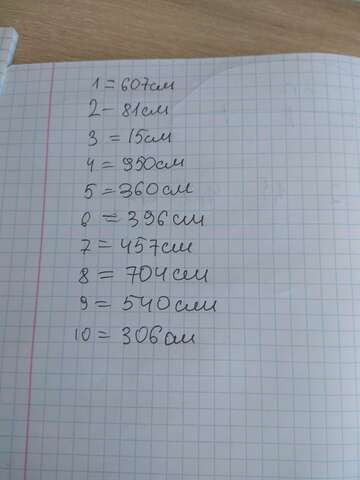 1 = 607см
2 - 81см
3 = 15см
4 = 950см
5 = 360см
6 = 396см
7 = 457см
8 = 704см
9 = 540см
10 = 306см